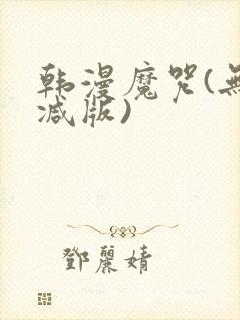 韩漫魔咒(無
减版)
鄧麗婧